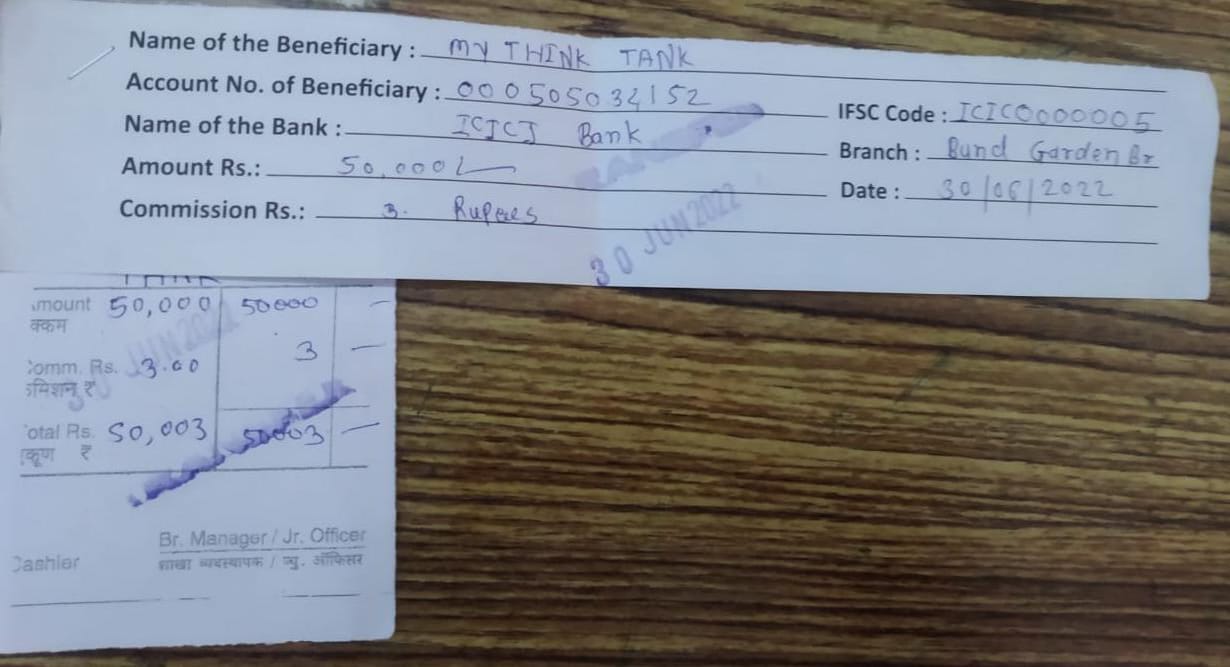 Name of the Beneficiary : MY THINK TANK
Account No. of Beneficiary : 000505034152
IFSC Code : ICIC0000005
Name of the Bank : ICICI Bank
Branch : Bund Garden Br
Amount Rs.: 50,000/-
Date : 30/06/2022
Commission Rs.: 3. Rupees
30 JUN 2022
mount 50,000 50000 -
क्कम
JUN 202
Comm. Rs. 3.00 3 -
मिशन ₹
otal Rs. 50,003 50003 -
कूण ₹
Br. Manager / Jr. Officer
Cashier
शाखा व्यवस्थापक / ज्यु. ऑफिसर